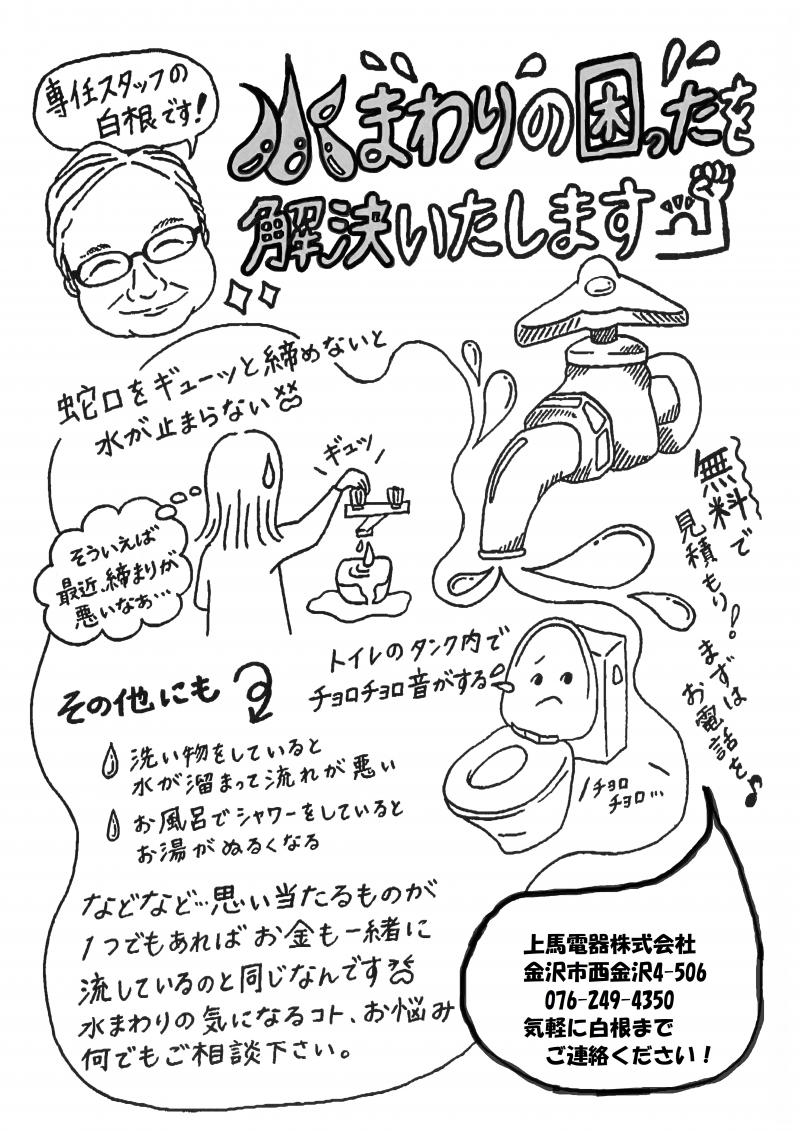 専任スタッフの
白根です!
水まわりの困ったを
解決いたします
蛇口をギューッと締めないと
水が止まらない
ギュッ
そういえば
最近、締まりが
悪いなぁ…
無料で
見積もり!
まずは
お電話を♪
トイレのタンク内で
チョロチョロ音がする
チョロ
チョロ…
その他にも
洗い物をしていると
水が溜まって流れが悪い
お風呂でシャワーをしていると
お湯がぬるくなる
などなど…思い当たるものが
1つでもあればお金も一緒に
流しているのと同じなんです
水まわりの気になるコト、お悩み
何でもご相談下さい。
上馬電器株式会社
金沢市西金沢4-506
076-249-4350
気軽に白根まで
ご連絡ください!